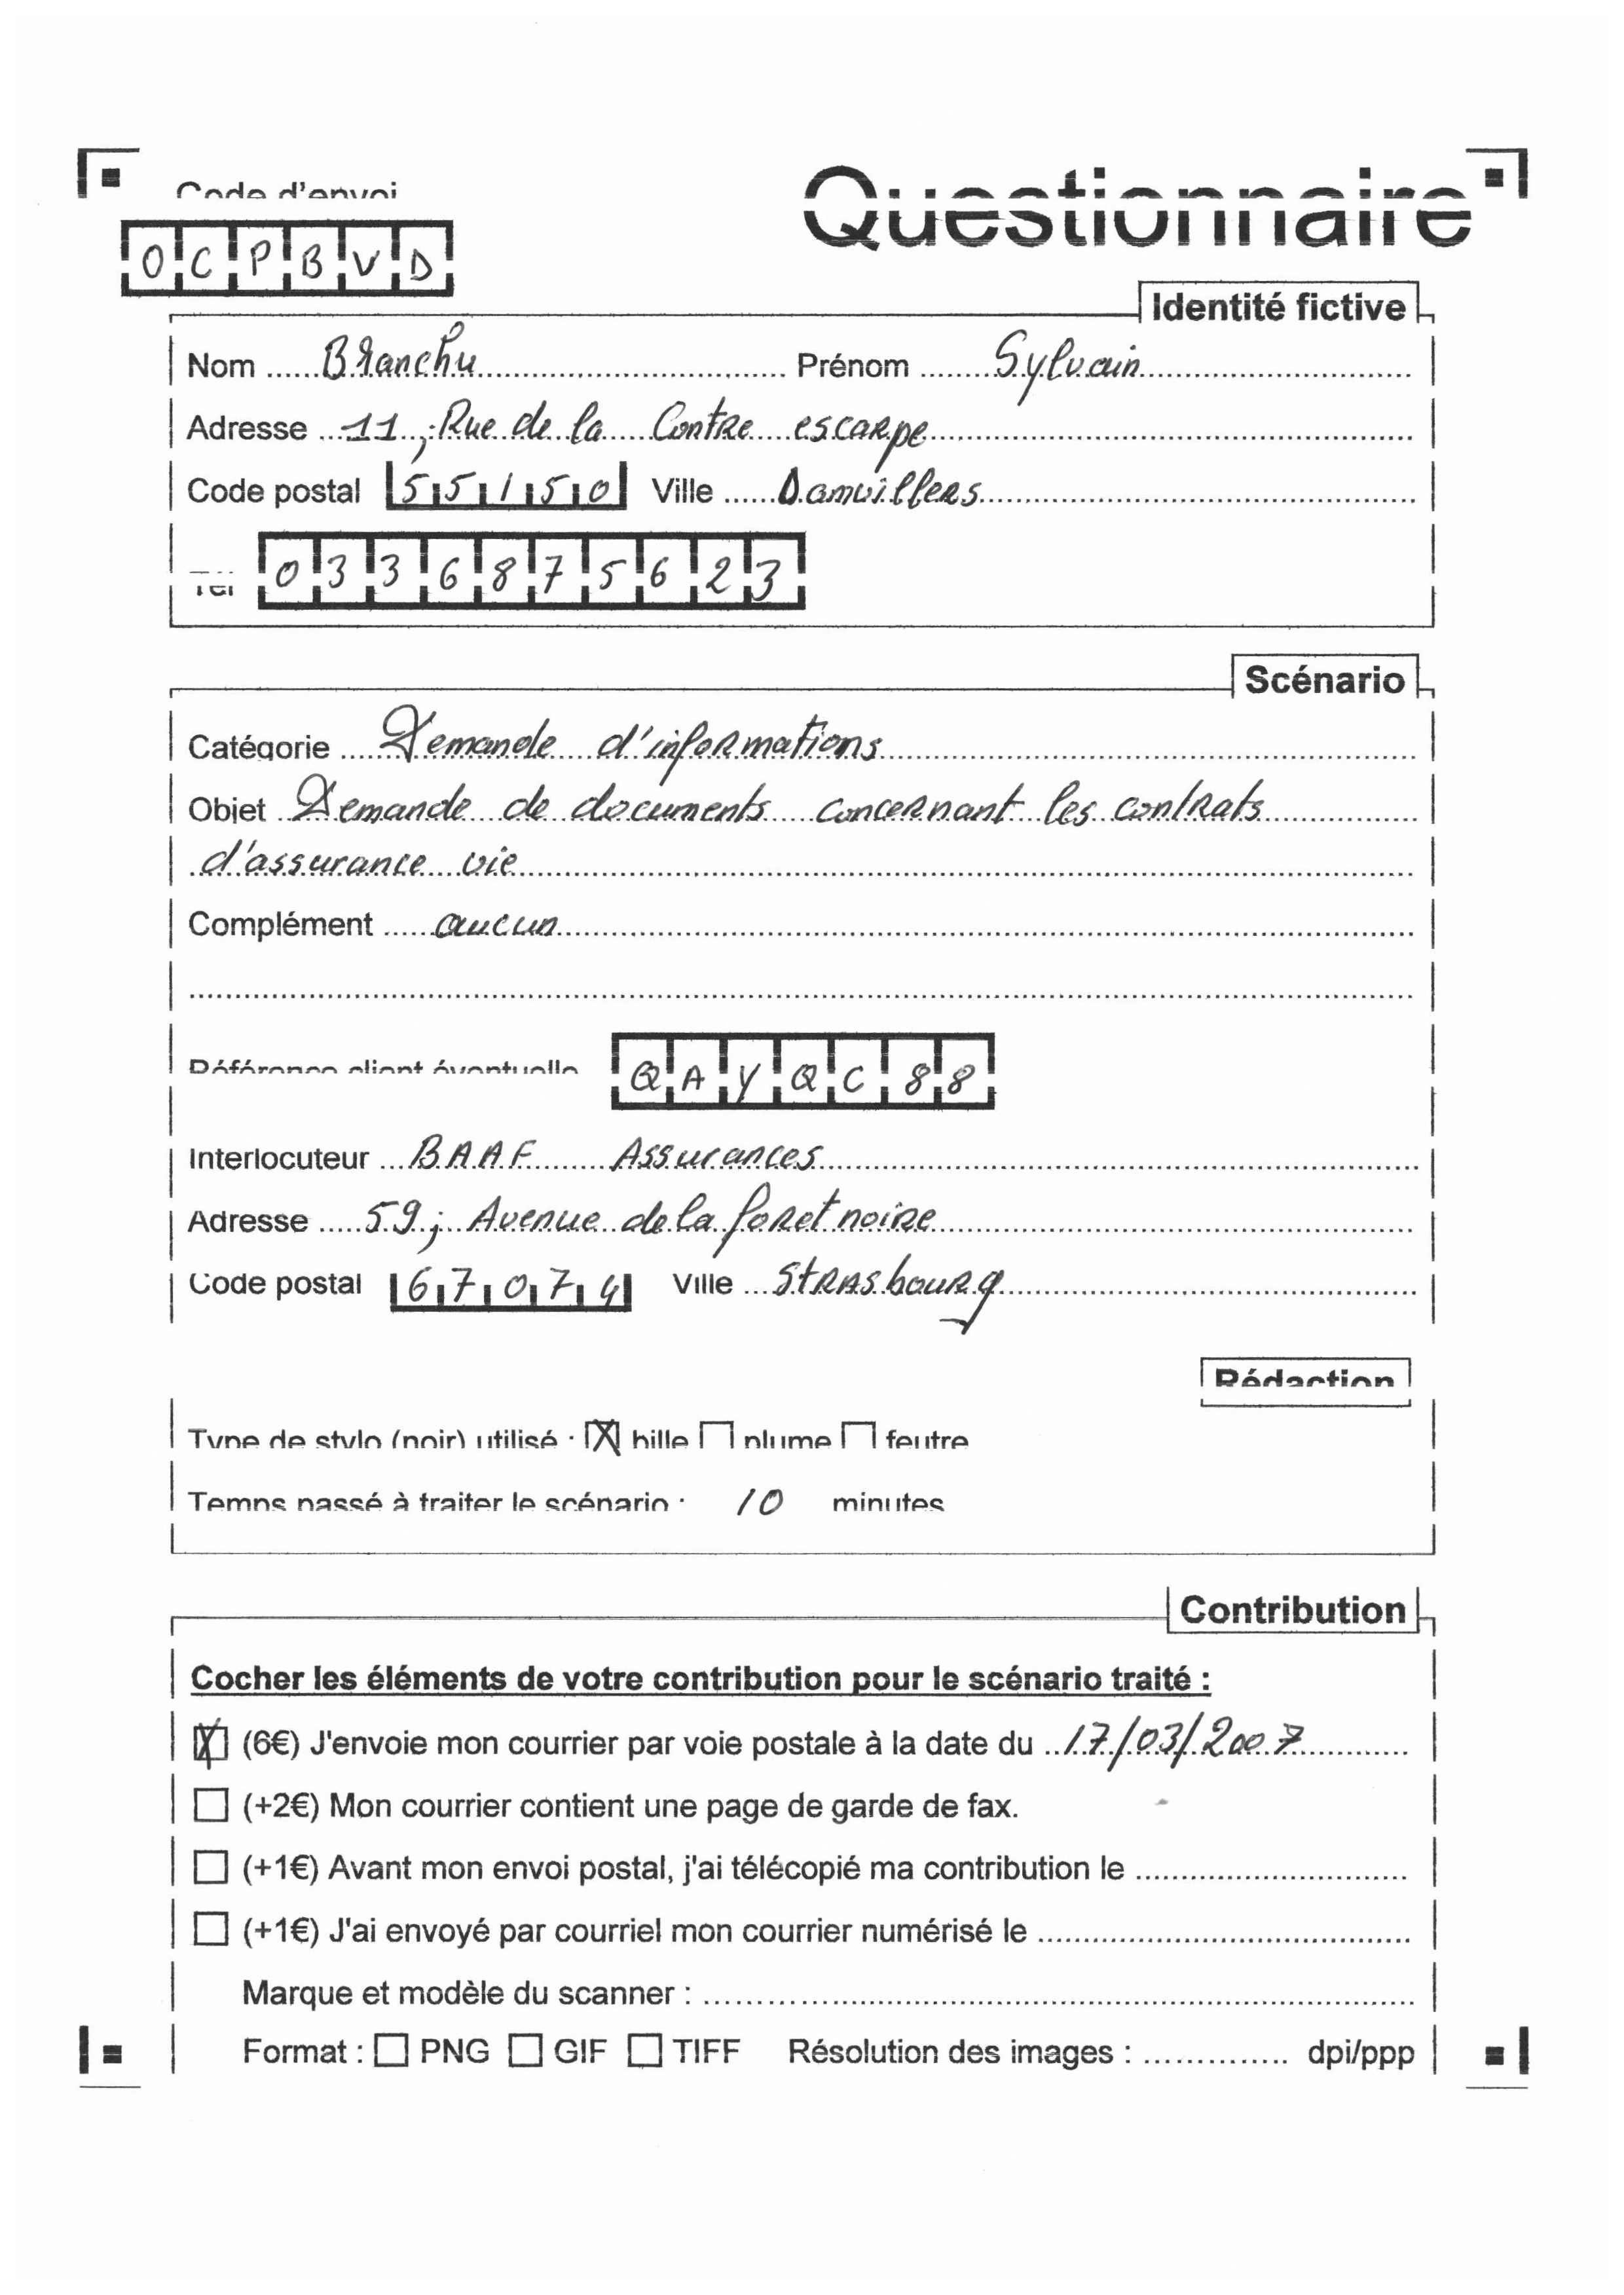 Code d'envoi
Questionnaire
OCPBVD
Identité fictive
Nom Branchu Prénom Sylvain
Adresse 11, Rue de la Contre escarpe
Code postal 55150 Ville Damvillers
Tél 0336875623
Scénario
Catégorie Demande d'informations
Objet Demande de documents concernant les contrats
d'assurance vie
Complément aucun
Référence client éventuelle QAYQC88
Interlocuteur BAAF Assurances
Adresse 59, Avenue de la foret noire
Code postal 67074 Ville Strasbourg
Rédaction
Type de stylo (noir) utilisé : bille plume feutre
Temps passé à traiter le scénario : 10 minutes
Contribution
Cocher les éléments de votre contribution pour le scénario traité :
(6€) J'envoie mon courrier par voie postale à la date du 17/03/2007
(+2€) Mon courrier contient une page de garde de fax.
(+1€) Avant mon envoi postal, j'ai télécopié ma contribution le
(+1€) J'ai envoyé par courriel mon courrier numérisé le
Marque et modèle du scanner :
Format : PNG GIF TIFF Résolution des images : dpi/ppp